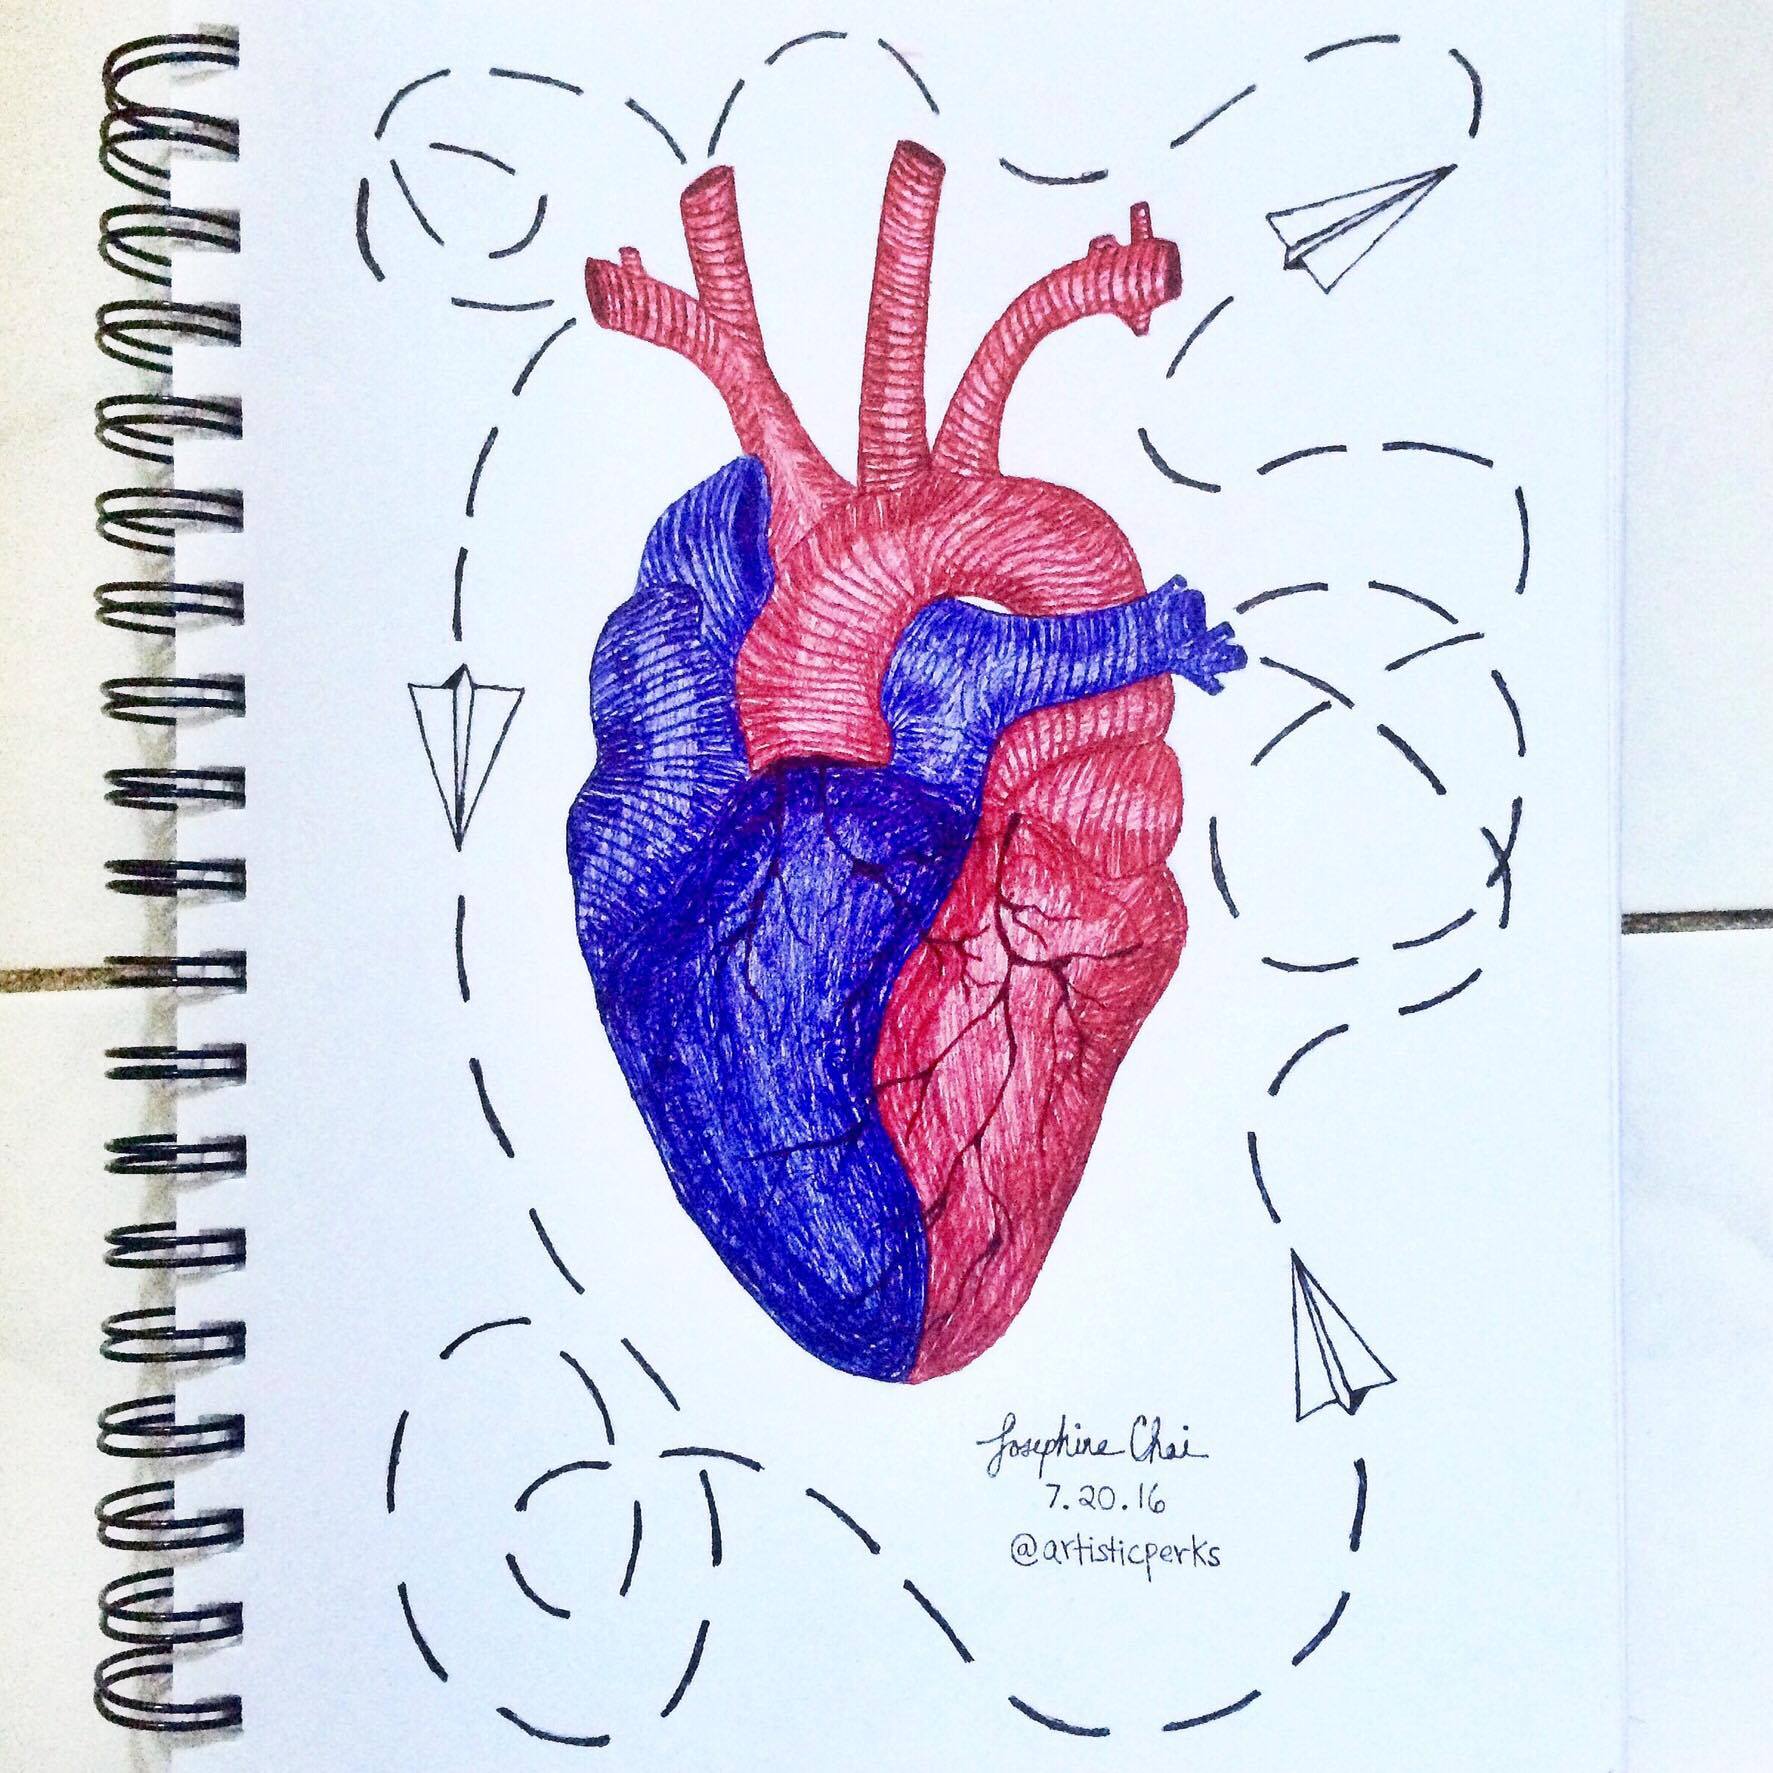 Josephine Chai
7.20.16
@artisticperks